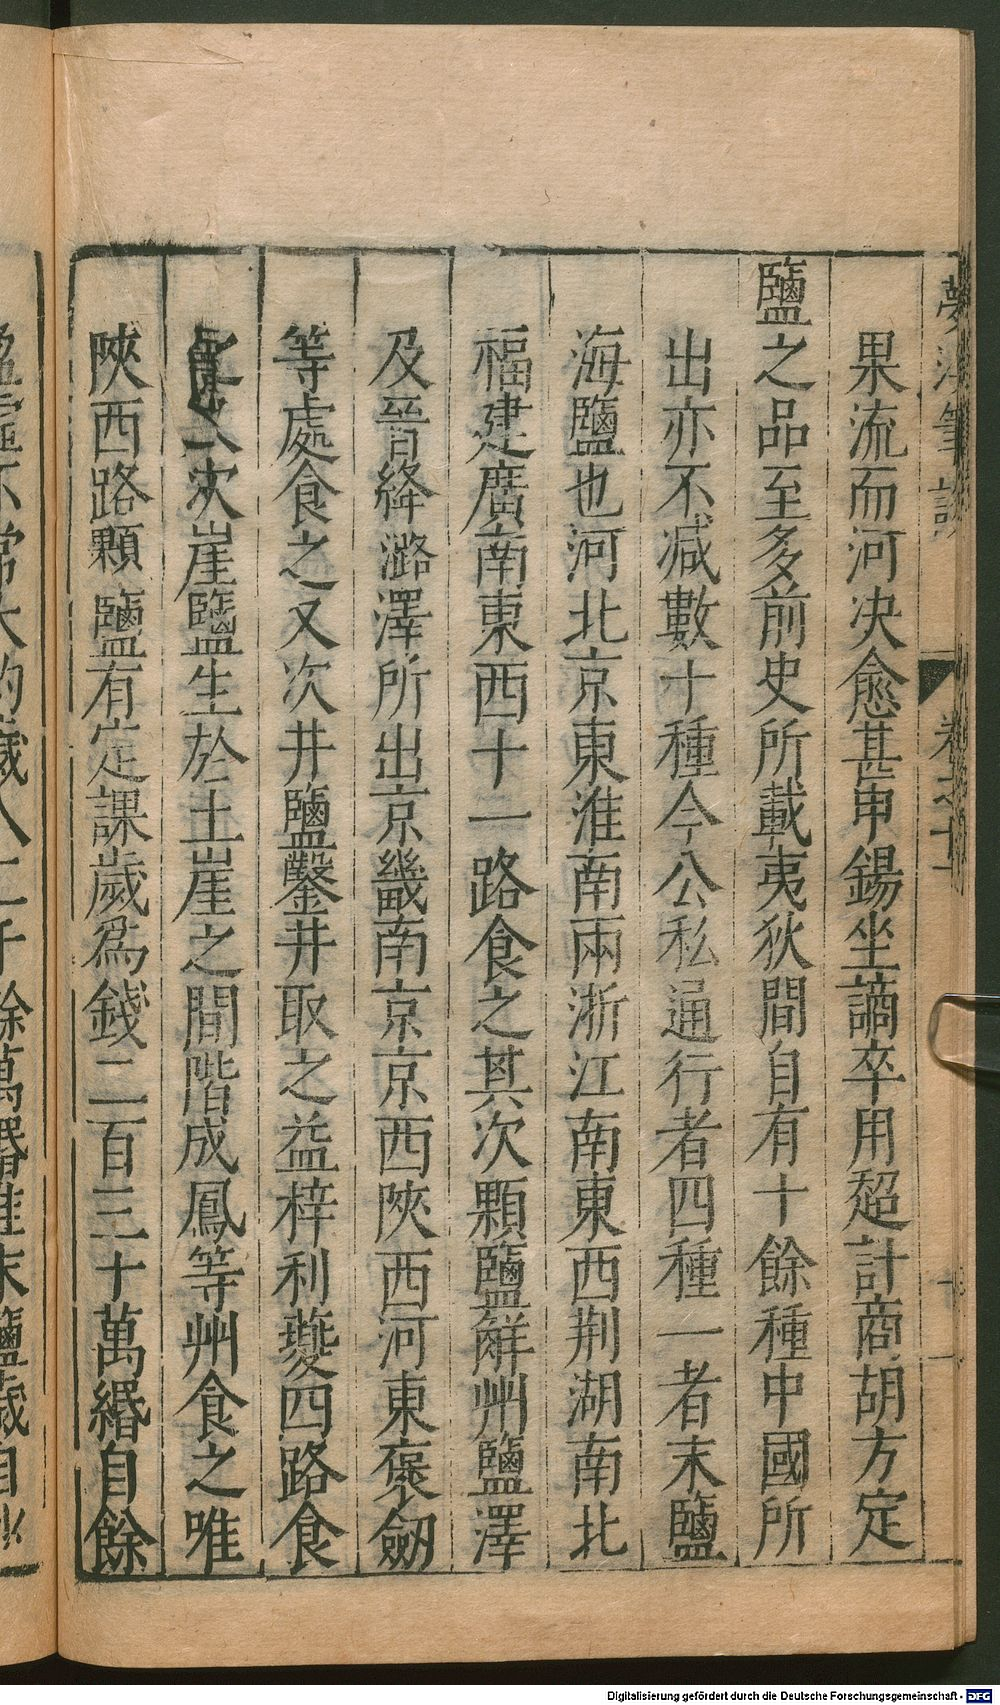 夢溪筆談 卷之十一
果流而河决愈甚申錫坐謫卒用超計商胡方定
鹽之品至多前史所載夷狄間自有十餘種中國所
出亦不减數十種今公私通行者四種一者末鹽
海鹽也河北京東淮南兩浙江南東西荆湖南北
福建廣南東西十一路食之其次顆鹽解州鹽澤
及晉絳潞澤所出京畿南京京西陝西河東褒劒
等處食之又次井鹽鑿井取之益梓利夔四路食
之又次崖鹽生於土崖之間階成鳳等州食之唯
陝西路顆鹽有定課歲爲錢二百三十萬緡自餘
盈虛不常大約歲入二千餘萬緡唯末鹽歲自
Digitalisierung gefördert durch die Deutsche Forschungsgemeinschaft - DFG